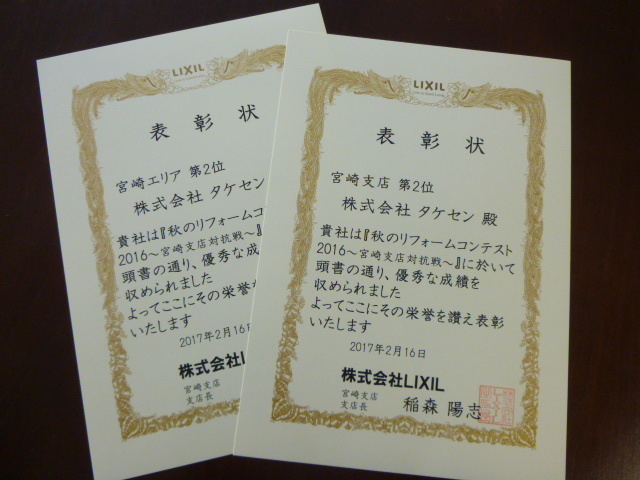 LIXIL
表彰状
宮崎エリア 第2位
株式会社 タケセン
貴社は『秋のリフォームコ
2016～宮崎支店対抗戦～』
頭書の通り、優秀な成
収められました
よってここにその栄誉
いたします
2017年2月16日
株式会社L
宮崎支店
支店長
LIXIL
表彰状
宮崎支店 第2位
株式会社 タケセン 殿
貴社は『秋のリフォームコンテスト
2016～宮崎支店対抗戦～』に於いて
頭書の通り、優秀な成績を
収められました
よってここにその栄誉を讃え表彰
いたします
2017年2月16日
株式会社LIXIL
宮崎支店
支店長 稲森 陽志